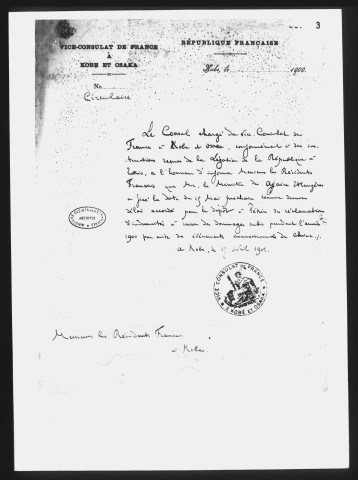 3
VICE-CONSULAT DE FRANCE
À
KOBE ET OSAKA
RÉPUBLIQUE FRANÇAISE
Kobe, le 1900.
No
Circulaire
Le Consul chargé du Vice-Consulat de
France à Kobe et Osaka, conformément à des ins-
tructions reçues de la Légation de la République à
a l'honneur d'informer Messieurs les Résidents
Français que Mr. le Ministre des Affaires Étrangères
a fixé la date du 15 Mai prochain comme dernier
délai accordé pour le dépôt à Pékin des réclamations
d'indemnités à raison des dommages subis pendant l'année
1900 par suite des événements de Chine ./.
à Kobe, le avril 1901.
ARCHIVES
VICE-CONSULAT DE FRANCE
À KOBE ET OSAKA
Messieurs les Résidents Français
à Kobe